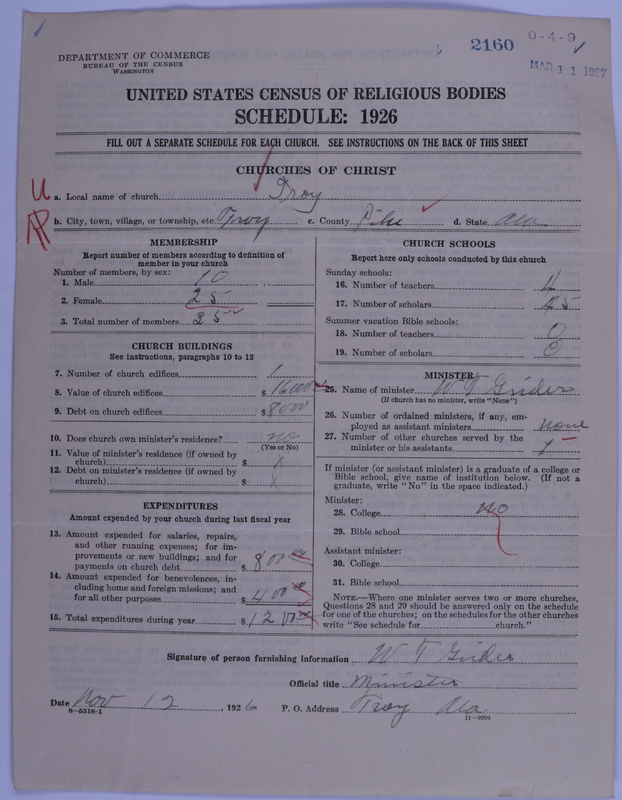 2160 0-4-9
MAR 11 1927
DEPARTMENT OF COMMERCE
BUREAU OF THE CENSUS
WASHINGTON
UNITED STATES CENSUS OF RELIGIOUS BODIES
SCHEDULE: 1926
FILL OUT A SEPARATE SCHEDULE FOR EACH CHURCH. SEE INSTRUCTIONS ON THE BACK OF THIS SHEET
CHURCHES OF CHRIST
U
a. Local name of church Troy
b. City, town, village, or township, etc. Troy c. County Pike d. State Ala
MEMBERSHIP
Report number of members according to definition of
member in your church
Number of members, by sex:
1. Male 10
2. Female 25
3. Total number of members 35
CHURCH BUILDINGS
See instructions, paragraphs 10 to 12
7. Number of church edifices 1
8. Value of church edifices $16000
9. Debt on church edifices $8000
10. Does church own minister's residence? no
(Yes or No)
11. Value of minister's residence (if owned by
church) $ x
12. Debt on minister's residence (if owned by
church) $ x
EXPENDITURES
Amount expended by your church during last fiscal year
13. Amount expended for salaries, repairs,
and other running expenses; for im-
provements or new buildings; and for
payments on church debt $ 800
14. Amount expended for benevolences, in-
cluding home and foreign missions; and
for all other purposes $ 400
15. Total expenditures during year $ 1200
CHURCH SCHOOLS
Report here only schools conducted by this church
Sunday schools:
16. Number of teachers 4
17. Number of scholars 45
Summer vacation Bible schools:
18. Number of teachers 0
19. Number of scholars 0
MINISTER
25. Name of minister W T Grider
(If church has no minister, write "None")
26. Number of ordained ministers, if any, em-
ployed as assistant ministers none
27. Number of other churches served by the
minister or his assistants 1
If minister (or assistant minister) is a graduate of a college or
Bible school, give name of institution below. (If not a
graduate, write "No" in the space indicated.)
Minister:
28. College no
29. Bible school
Assistant minister:
30. College
31. Bible school
NOTE.—Where one minister serves two or more churches,
Questions 28 and 29 should be answered only on the schedule
for one of the churches; on the schedules for the other churches
write "See schedule for church."
Signature of person furnishing information W T Grider
Official title Minister
Date Nov 12, 1926 P. O. Address Troy Ala
8-5518-1 11-9204